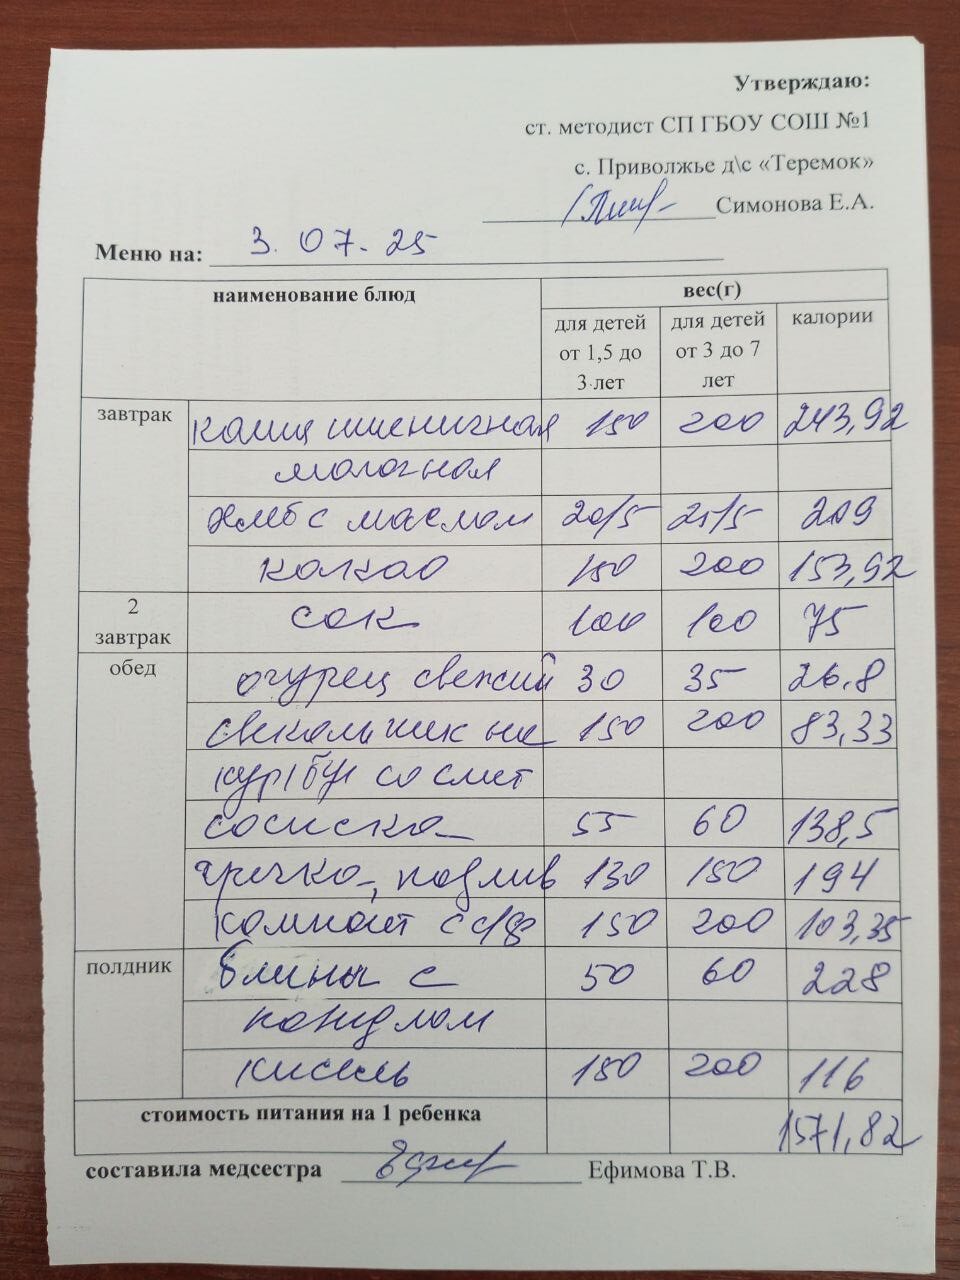 Утверждаю:
ст. методист СП ГБОУ СОШ №1
с. Приволжье д\с «Теремок»
Симонова Е.А.
Меню на: 3. 07. 25
наименование блюд вес(г)
для детей от 1,5 до 3 лет для детей от 3 до 7 лет калории
завтрак каша пшеничная 150 200 243,92
молочная
хлеб с маслом 20/5 25/5 209
какао 150 200 153,92
2 завтрак сок 100 100 75
обед огурец свежий 30 35 26.8
свекольник на 150 200 83,33
кур/бул со смет
сосиска 55 60 138,5
гречка, подлив 130 150 194
компот с с/ф 150 200 103,35
полдник блины с 50 60 228
повидлом
кисель 150 200 116
стоимость питания на 1 ребенка 1571,82
составила медсестра Ефимова Т.В.